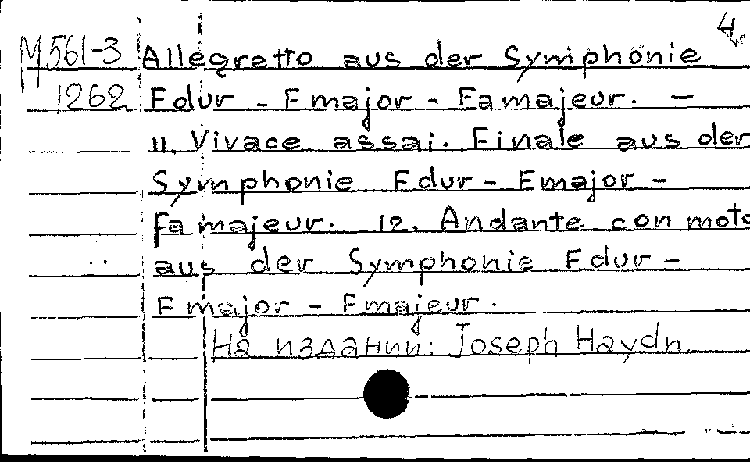 4.
M561-3 Allegretto aus der Symphonie
1262 Fdur - F major - Fa majeur. -
11. Vivace assai. Finale aus der
Symphonie Fdur - F major -
Fa majeur. 12. Andante con moto
aus der Symphonie Fdur -
F major - F majeur.
На издании: Joseph Haydn.